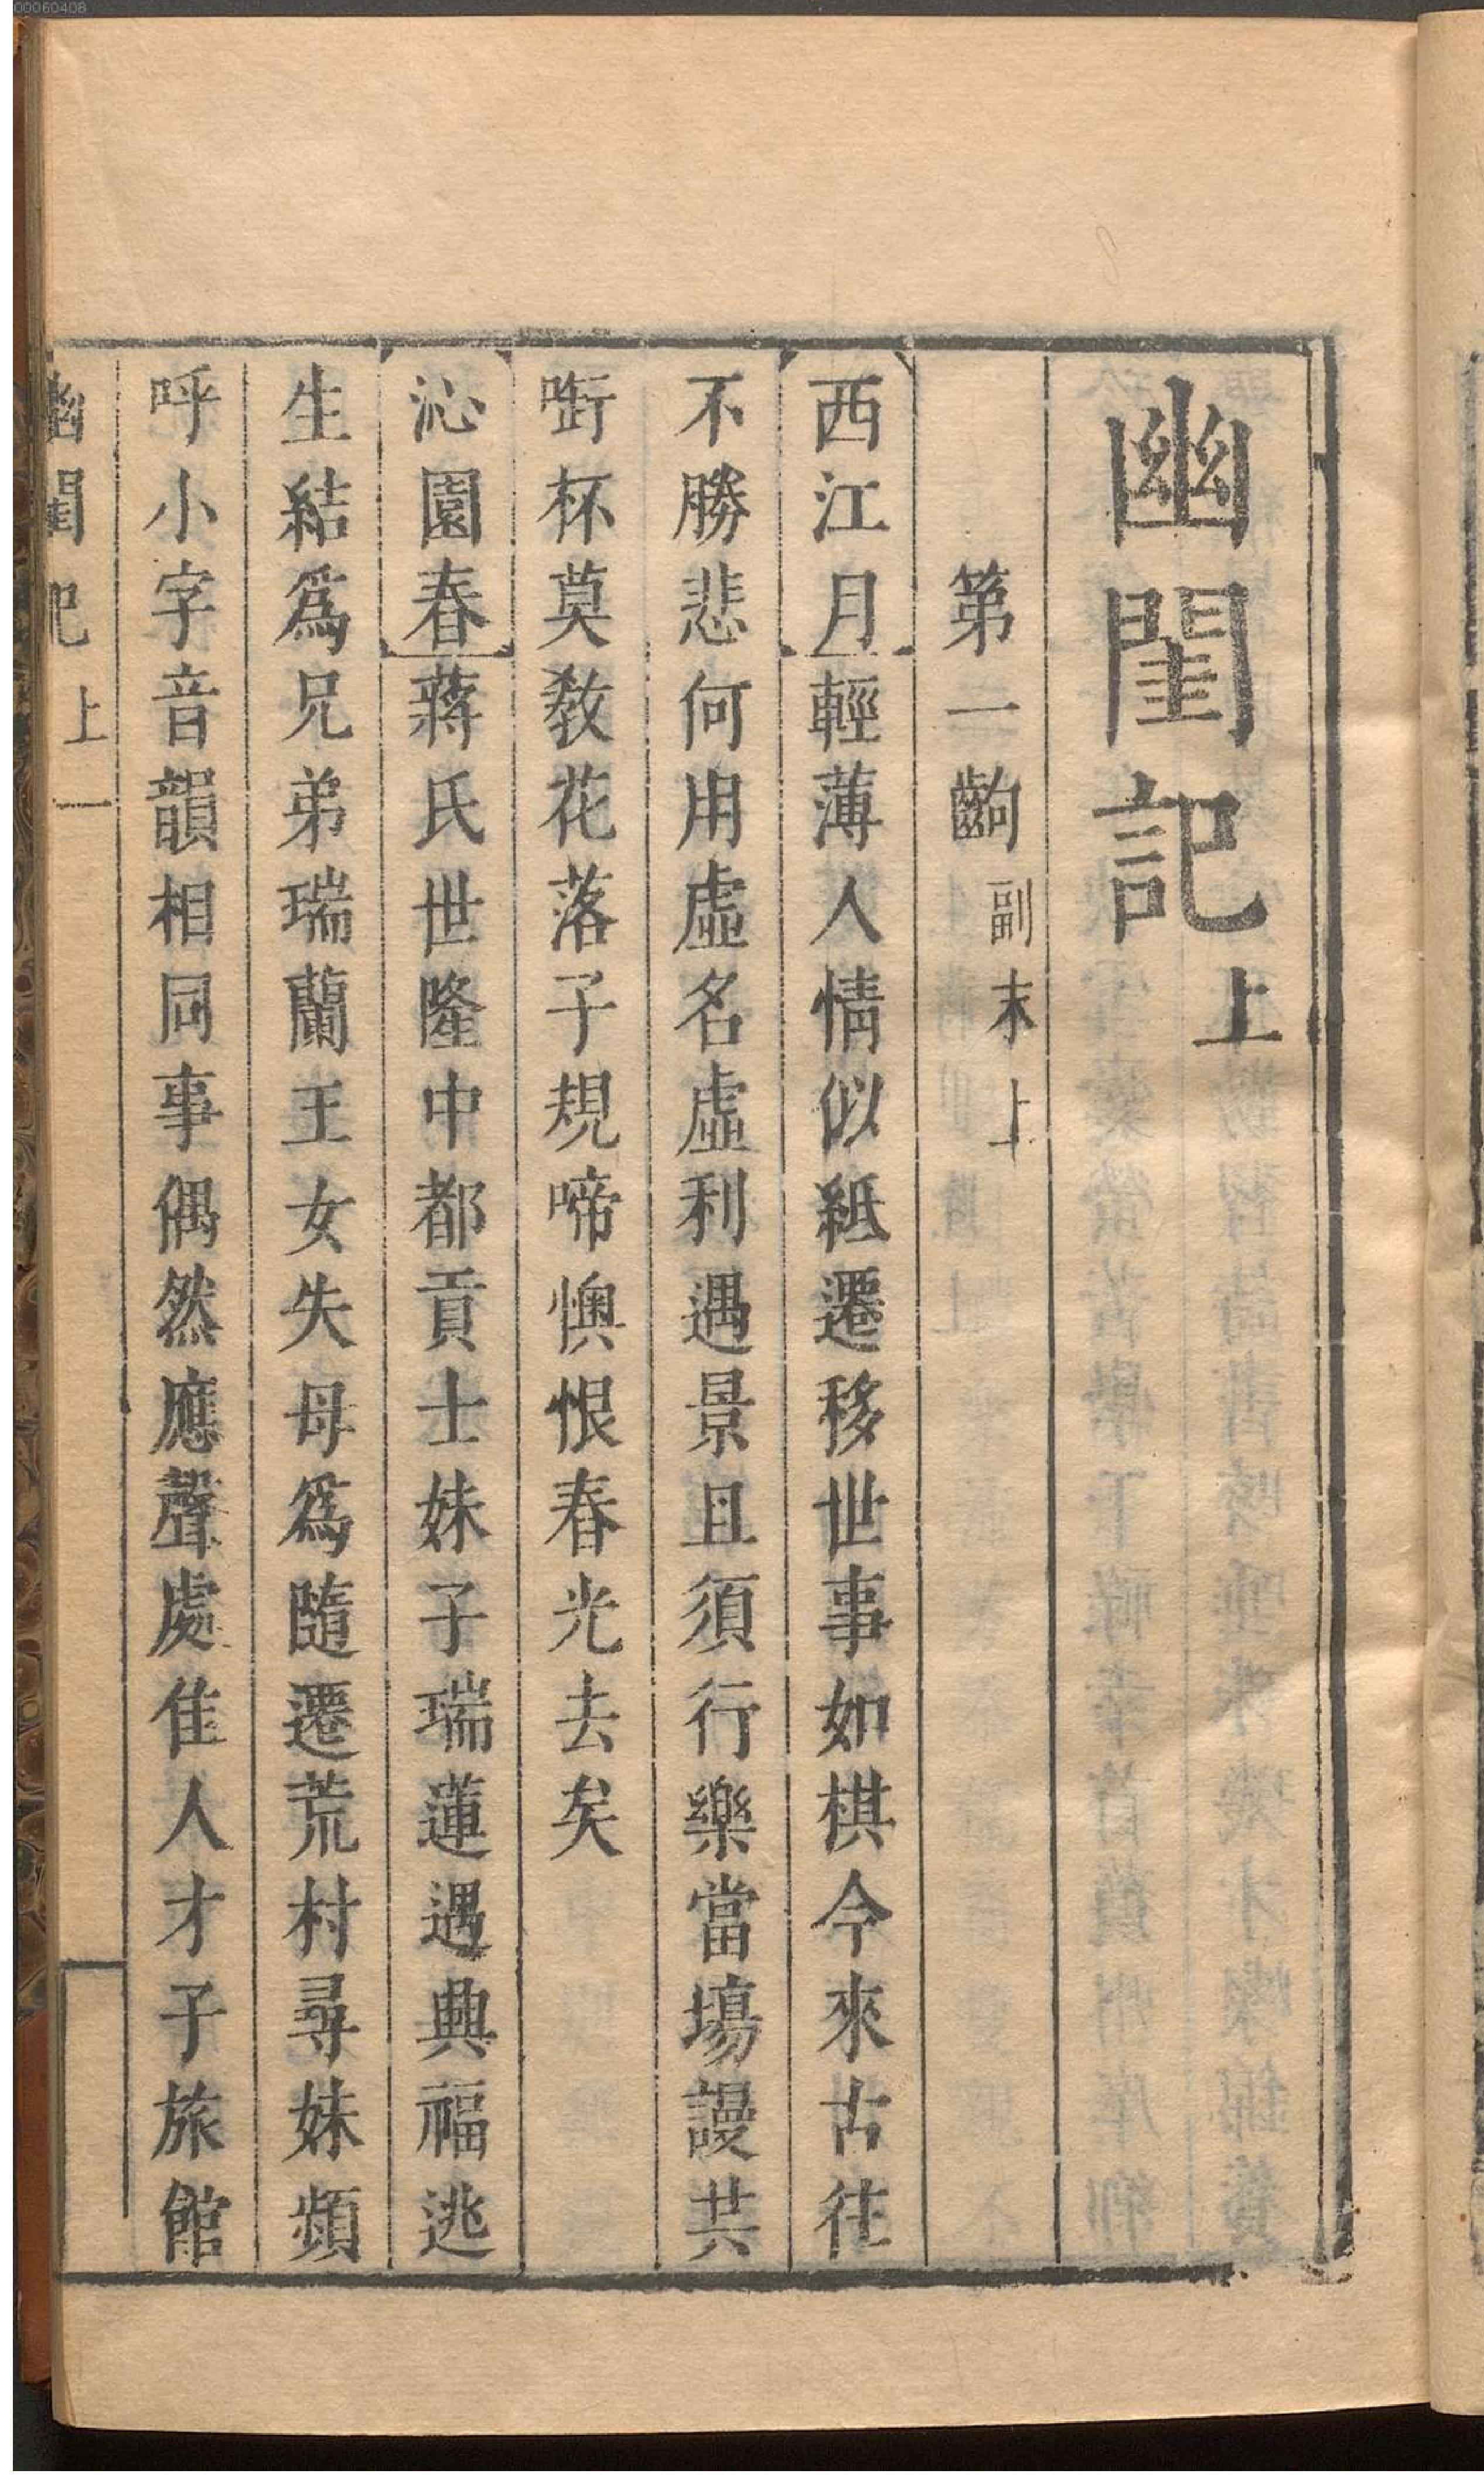 00060408
幽閨記上
第一齣副末上
西江月輕薄人情似紙遷移世事如棋今來古往
不勝悲何用虛名虛利遇景且須行樂當場謾共
啣杯莫教花落子規啼懊恨春光去矣
沁園春蔣氏世隆中都貢士妹子瑞蓮遇興福逃
生結為兄弟瑞蘭王女失母為隨遷荒村尋妹頻
呼小字音韻相同事偶然應聲處佳人才子旅館
幽閨記上一